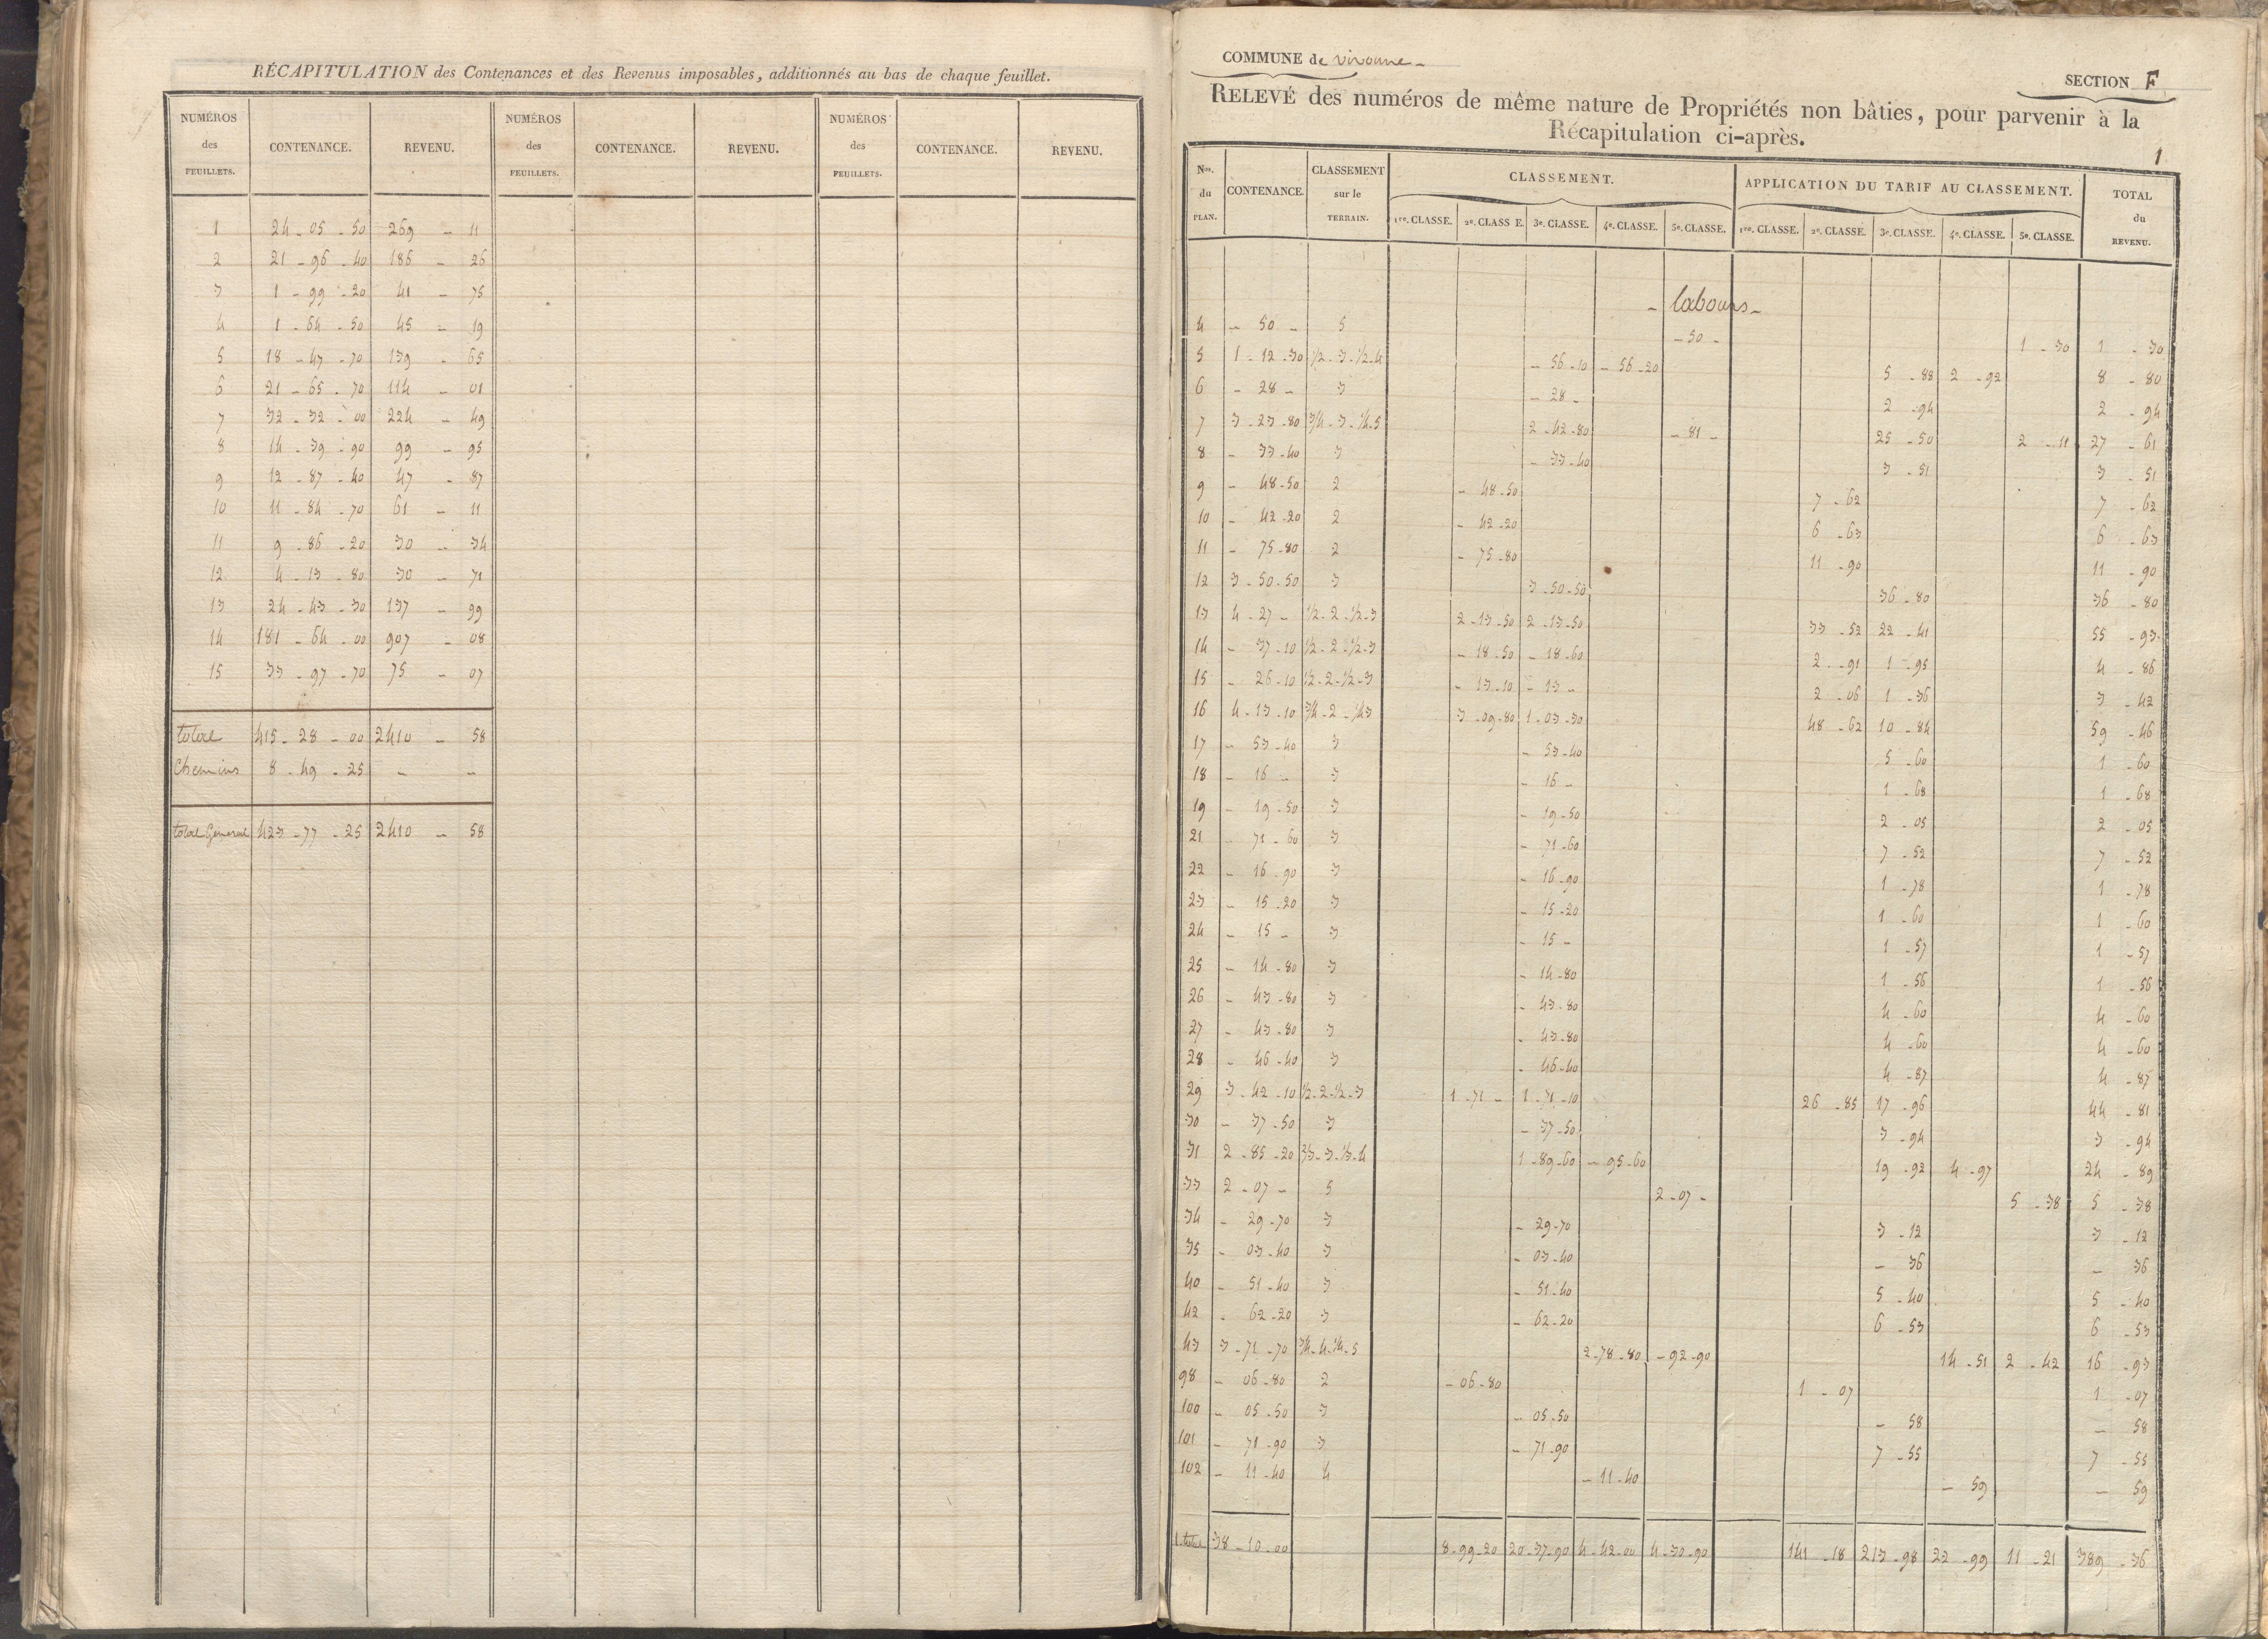 RÉCAPITULATION des Contenances et des Revenus imposables, additionnés au bas de chaque feuillet.
NUMÉROS des FEUILLETS. CONTENANCE. REVENU. NUMÉROS des FEUILLETS. CONTENANCE. REVENU. NUMÉROS des FEUILLETS. CONTENANCE. REVENU.
1 24 - 05 - 50 269 - 11
2 21 - 96 - 40 186 - 26
3 1 - 99 - 20 41 - 75
4 1 - 64 - 50 45 - 19
5 18 - 47 - 70 139 - 65
6 21 - 65 - 70 114 - 01
7 32 - 32 - 00 224 - 49
8 14 - 39 - 90 99 - 95
9 12 - 87 - 40 47 - 87
10 11 - 84 - 70 61 - 11
11 9 - 86 - 20 30 - 34
12 4 - 13 - 80 30 - 71
13 24 - 43 - 30 137 - 99
14 181 - 64 - 00 907 - 08
15 33 - 97 - 70 75 - 07
total 415 - 28 - 00 2410 - 58
Chemins 8 - 49 - 25 - -
total General 423 - 77 - 25 2410 - 58
COMMUNE de vivonne -
SECTION F
RELEVÉ des numéros de même nature de Propriétés non bâties, pour parvenir à la
Récapitulation ci-après.
1
Nos. du PLAN. CONTENANCE. CLASSEMENT sur le TERRAIN. CLASSEMENT. APPLICATION DU TARIF AU CLASSEMENT. TOTAL du REVENU.
1re. CLASSE. 2e. CLASSE. 3e. CLASSE. 4e. CLASSE. 5e. CLASSE. 1re. CLASSE. 2e. CLASSE. 3e. CLASSE. 4e. CLASSE. 5e. CLASSE.
- labours -
4 - 50 - 5 - 50 - 1 - 30 1 - 30
5 1 - 12 - 30 1/2 - 3 - 1/2 - 4 - 56 - 10 - 56 - 20 5 - 88 2 - 92 8 - 80
6 - 28 - 3 - 28 - 2 - 94 2 - 94
7 3 - 23 - 80 3/4 - 3 - 1/4 - 5 2 - 42 - 80 - 81 - 25 - 50 2 - 11 27 - 61
8 - 33 - 40 3 - 33 - 40 3 - 51 3 - 51
9 - 48 - 50 2 - 48 - 50 7 - 62 7 - 62
10 - 42 - 20 2 - 42 - 20 6 - 63 6 - 63
11 - 75 - 80 2 - 75 - 80 11 - 90 11 - 90
12 3 - 50 - 50 3 3 - 50 - 50 36 - 80 36 - 80
13 4 - 27 - 1/2 - 2 - 1/2 - 3 2 - 13 - 50 2 - 13 - 50 33 - 52 22 - 41 55 - 93
14 - 37 - 10 1/2 - 2 - 1/2 - 3 - 18 - 50 - 18 - 60 2 - 91 1 - 95 4 - 86
15 - 26 - 10 1/2 - 2 - 1/2 - 3 - 13 - 10 - 13 - 2 - 06 1 - 36 3 - 42
16 4 - 13 - 10 3/4 - 2 - 1/4 3 3 - 09 - 80 1 - 03 - 30 48 - 62 10 - 84 59 - 46
17 - 53 - 40 3 - 53 - 40 5 - 60 1 - 60
18 - 16 - 3 - 16 - 1 - 68 1 - 68
19 - 19 - 50 3 - 19 - 50 2 - 05 2 - 05
21 - 71 - 60 3 - 71 - 60 7 - 52 7 - 52
22 - 16 - 90 3 - 16 - 90 1 - 78 1 - 78
23 - 15 - 20 3 - 15 - 20 1 - 60 1 - 60
24 - 15 - 3 - 15 - 1 - 57 1 - 57
25 - 14 - 80 3 - 14 - 80 1 - 56 1 - 56
26 - 43 - 80 3 - 43 - 80 4 - 60 4 - 60
27 - 43 - 80 3 - 43 - 80 4 - 60 4 - 60
28 - 46 - 40 3 - 46 - 40 4 - 87 4 - 87
29 3 - 42 - 10 1/2 - 2 - 1/2 - 3 1 - 71 - 1 - 71 - 10 26 - 85 17 - 96 44 - 81
30 - 37 - 50 3 - 37 - 50 3 - 94 3 - 94
31 2 - 85 - 20 2/3 - 3 - 1/3 - 4 1 - 89 - 60 - 95 - 60 19 - 92 4 - 97 24 - 89
33 2 - 07 - 5 2 - 07 - 5 - 38 5 - 38
34 - 29 - 70 3 - 29 - 70 3 - 12 3 - 12
35 - 03 - 40 3 - 03 - 40 - 36 - 36
40 - 51 - 40 3 - 51 - 40 5 - 40 5 - 40
42 - 62 - 20 3 - 62 - 20 6 - 53 6 - 53
43 3 - 71 - 70 3/4 - 4 - 1/4 - 5 2 - 78 - 80 - 92 - 90 14 - 51 2 - 42 16 - 93
98 - 06 - 80 2 - 06 - 80 1 - 07 1 - 07
100 - 05 - 50 3 - 05 - 50 - 58 - 58
101 - 71 - 90 3 - 71 - 90 7 - 55 7 - 55
102 - 11 - 40 4 - 11 - 40 - 59 - 59
1. total 38 - 10 - 00 8 - 99 - 20 20 - 37 - 90 4 - 42 - 00 4 - 30 - 90 141 - 18 213 - 98 22 - 99 11 - 21 389 - 36